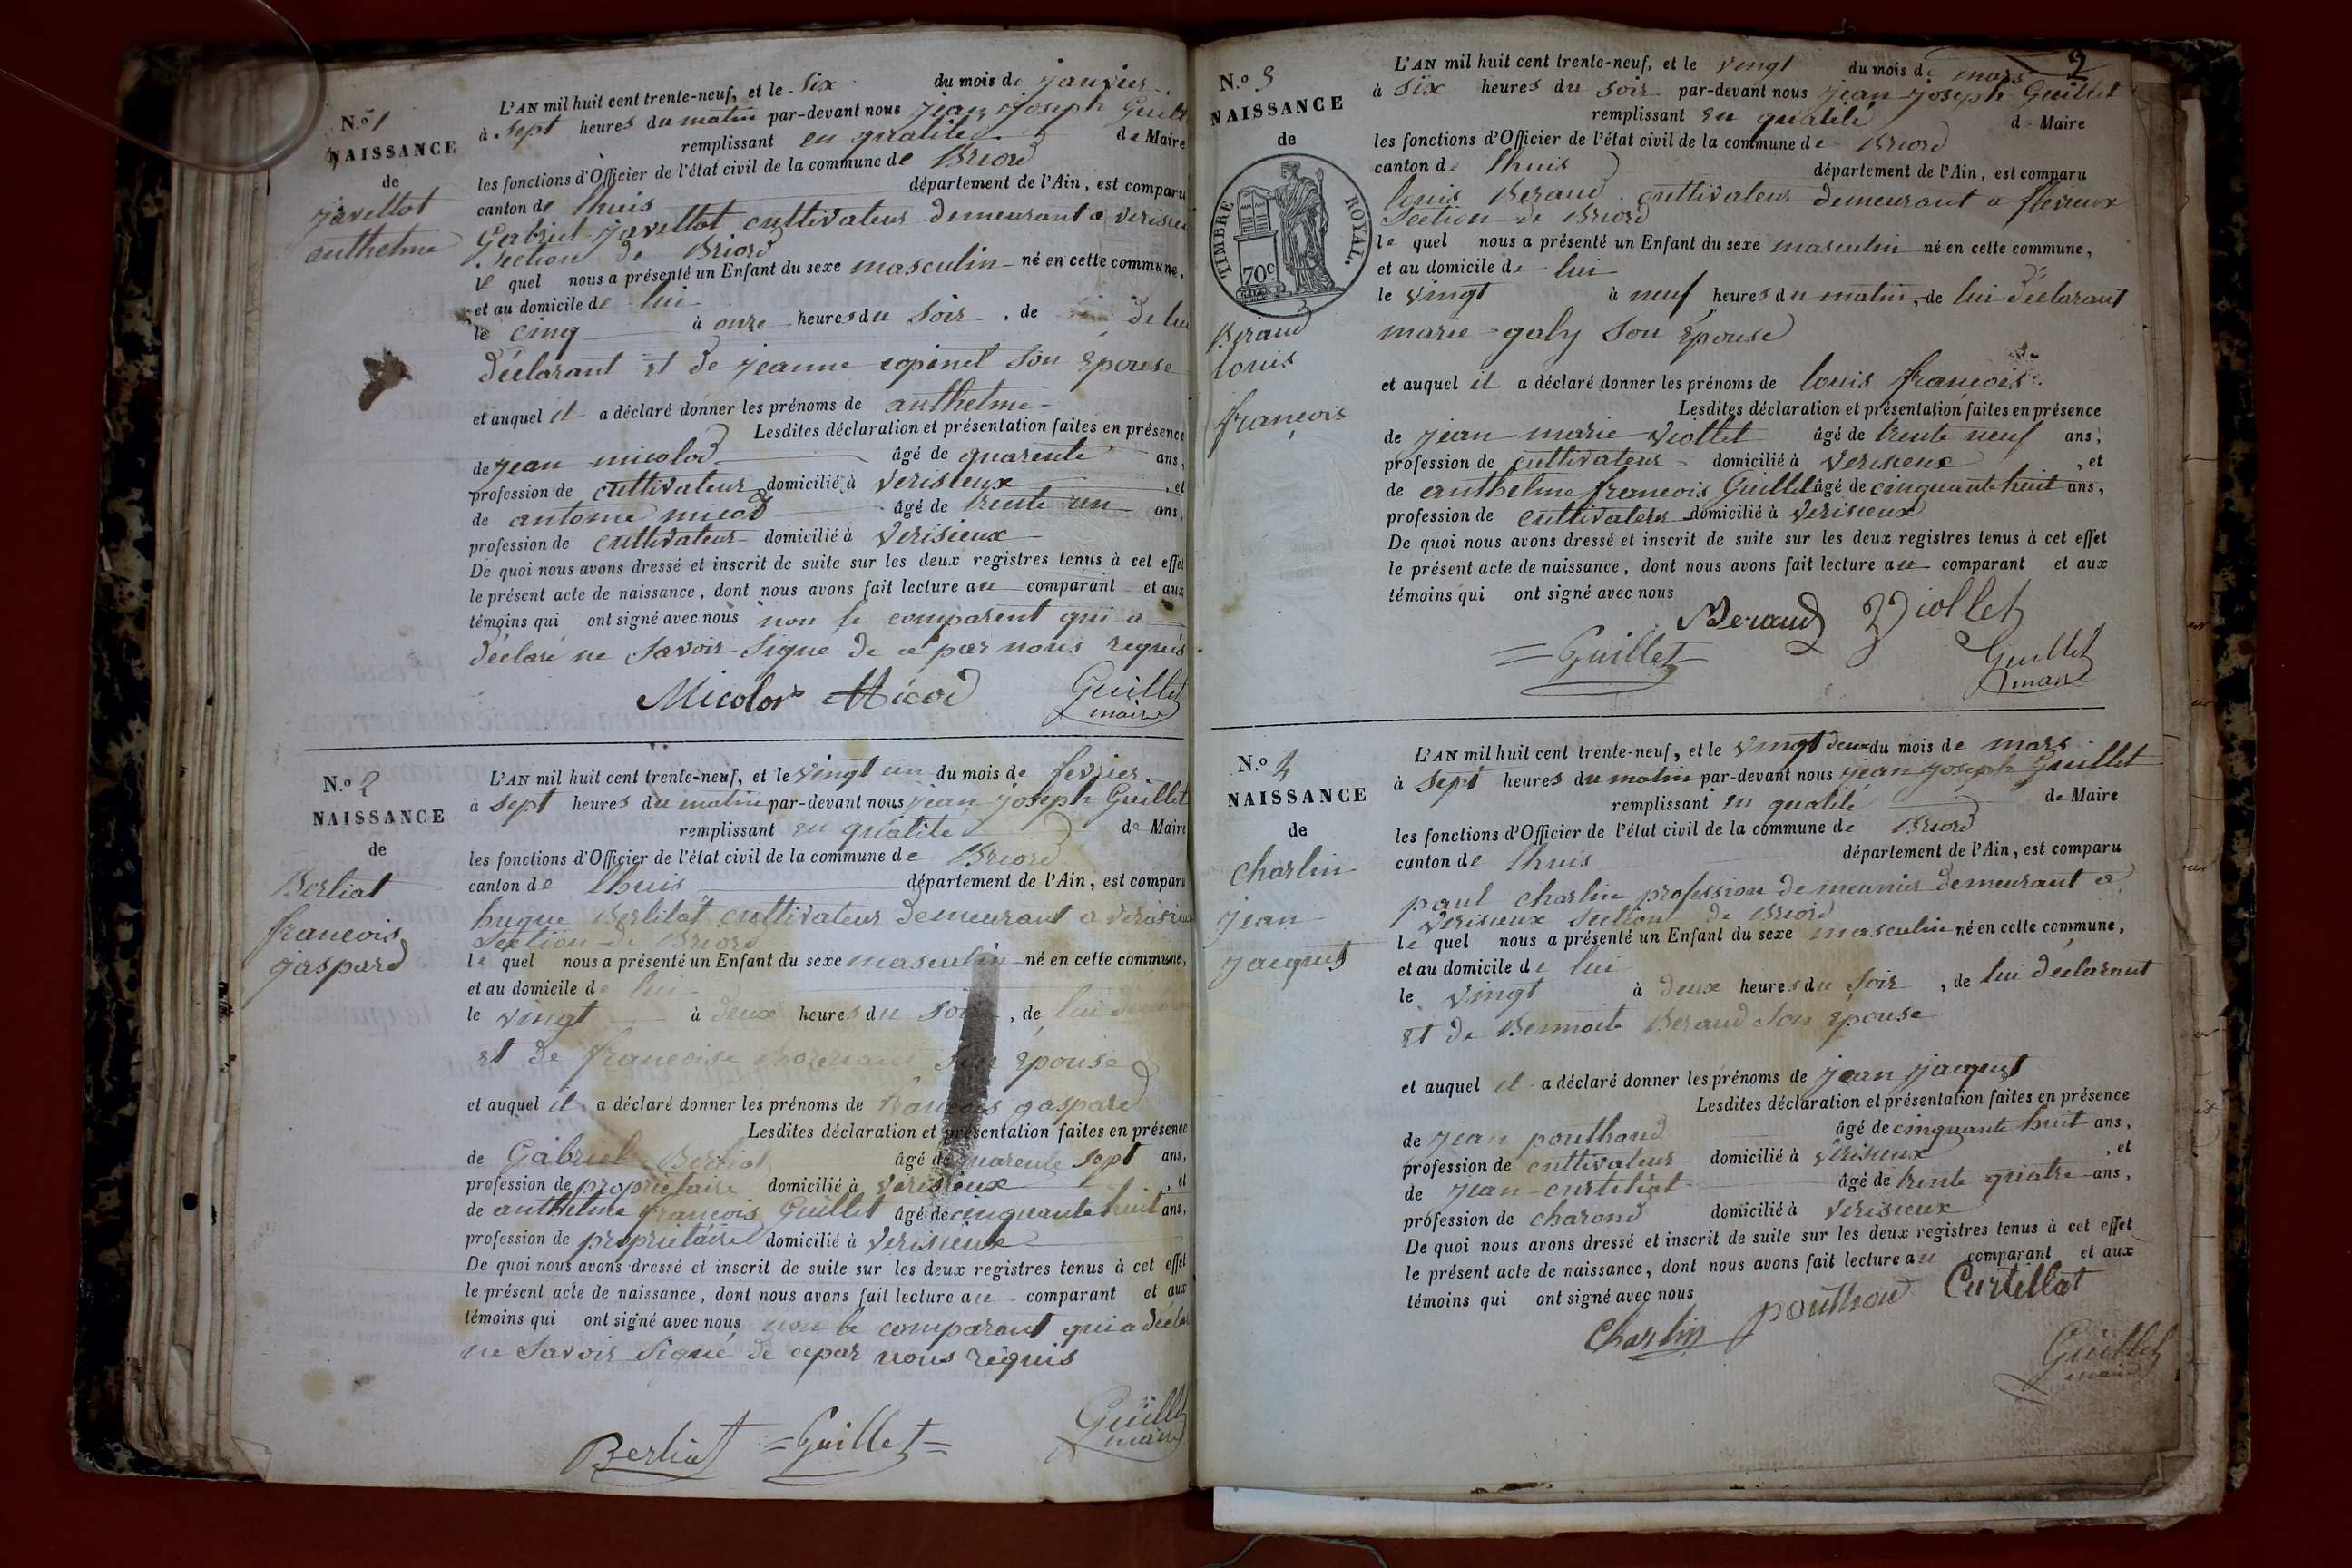 N.o 1
NAISSANCE
de
javellot
anthelme
L'AN mil huit cent trente-neuf, et le six du mois de janvier
à sept heures du matin par-devant nous jean joseph Guill
remplissant en qualité de Maire
les fonctions d'Officier de l'état civil de la commune de Briord
canton de lhuis département de l'Ain, est comparu
Gabriel javellot cultivateur demeurant a verisieu
section de Briord
le quel nous a présenté un Enfant du sexe masculin né en cette commune,
et au domicile de lui
le cinq à onze heures du soir, de de lui
déclarant et de jeanne copinet son épouse
et auquel il a déclaré donner les prénoms de anthelme
Lesdites déclaration et présentation faites en présence
de jean micolod âgé de quarente ans,
profession de cultivateur domicilié à verisieux, et
de antoine micod âgé de trente un ans,
profession de cultivateur domicilié à verisieux
De quoi nous avons dressé et inscrit de suite sur les deux registres tenus à cet effet
le présent acte de naissance, dont nous avons fait lecture au comparant et aux
témoins qui ont signé avec nous non le comparent qui a
déclaré ne savoir signe de ce par nous requis
Micolod Micod Guillet
maire
N.o 2
NAISSANCE
de
Berliat
francois
gaspard
L'AN mil huit cent trente-neuf, et le vingt un du mois de fevrier
à sept heures du matin par-devant nous jean joseph Guillet
remplissant en qualité de Maire
les fonctions d'Officier de l'état civil de la commune de Briord
canton de lhuis département de l'Ain, est comparu
hugue Berliat cultivateur demeurant a verisieu
section de Briord
le quel nous a présenté un Enfant du sexe masculin né en cette commune,
et au domicile de lui
le vingt à deux heures du soir, de lui
et de francoise son épouse
et auquel il a déclaré donner les prénoms de francois gaspard
Lesdites déclaration et présentation faites en présence
de Gabriel Berliat âgé de quarente sept ans,
profession de propriétaire domicilié à verisieux, et
de anthelme francois Guillet âgé de cinquante huit ans,
profession de propriétaire domicilié à verisieux
De quoi nous avons dressé et inscrit de suite sur les deux registres tenus à cet effet
le présent acte de naissance, dont nous avons fait lecture au comparant et aux
témoins qui ont signé avec nous non le comparant qui a décla
ne savoir signé de ce par nous requis
Berliat Guillet Guillet
maire
2
N.o 3
NAISSANCE
de
TIMBRE ROYAL.
70c
Beraud
louis
françois
L'AN mil huit cent trente-neuf, et le vingt du mois de mars
à six heures du soir par-devant nous jean joseph Guillet
remplissant en qualité de Maire
les fonctions d'Officier de l'état civil de la commune de Briord
canton de lhuis département de l'Ain, est comparu
louis Beraud cultivateur demeurant a flevieux
section de Briord
le quel nous a présenté un Enfant du sexe masculin né en cette commune,
et au domicile de lui
le vingt à neuf heures du matin, de lui déclarant
marie galy son épouse
et auquel il a déclaré donner les prénoms de louis francois
Lesdites déclaration et présentation faites en présence
de jean marie viollet âgé de trente neuf ans,
profession de cultivateur domicilié à verisieux, et
de anthelme francois Guillet âgé de cinquante huit ans,
profession de cultivateur domicilié à verisieux
De quoi nous avons dressé et inscrit de suite sur les deux registres tenus à cet effet
le présent acte de naissance, dont nous avons fait lecture au comparant et aux
témoins qui ont signé avec nous
Beraud Viollet
Guillet Guillet
maire
N.o 4
NAISSANCE
de
charlin
jean
jacques
L'AN mil huit cent trente-neuf, et le vingt deux du mois de mars
à sept heures du matin par-devant nous jean joseph Guillet
remplissant en qualité de Maire
les fonctions d'Officier de l'état civil de la commune de Briord
canton de lhuis département de l'Ain, est comparu
paul charlin profession de meunier demeurant a
verisieux section de Briord
le quel nous a présenté un Enfant du sexe masculin né en cette commune,
et au domicile de lui
le vingt à deux heures du soir, de lui déclarant
et de Bennoite Beraud son épouse
et auquel il a déclaré donner les prénoms de jean jacques
Lesdites déclaration et présentation faites en présence
de jean pouthond âgé de cinquante huit ans,
profession de cultivateur domicilié à verisieux, et
de jean curtiliat âgé de trente quatre ans,
profession de charond domicilié à verisieux
De quoi nous avons dressé et inscrit de suite sur les deux registres tenus à cet effet
le présent acte de naissance, dont nous avons fait lecture au comparant et aux
témoins qui ont signé avec nous
Charlin pouthod Curtillat
Guillet
maire